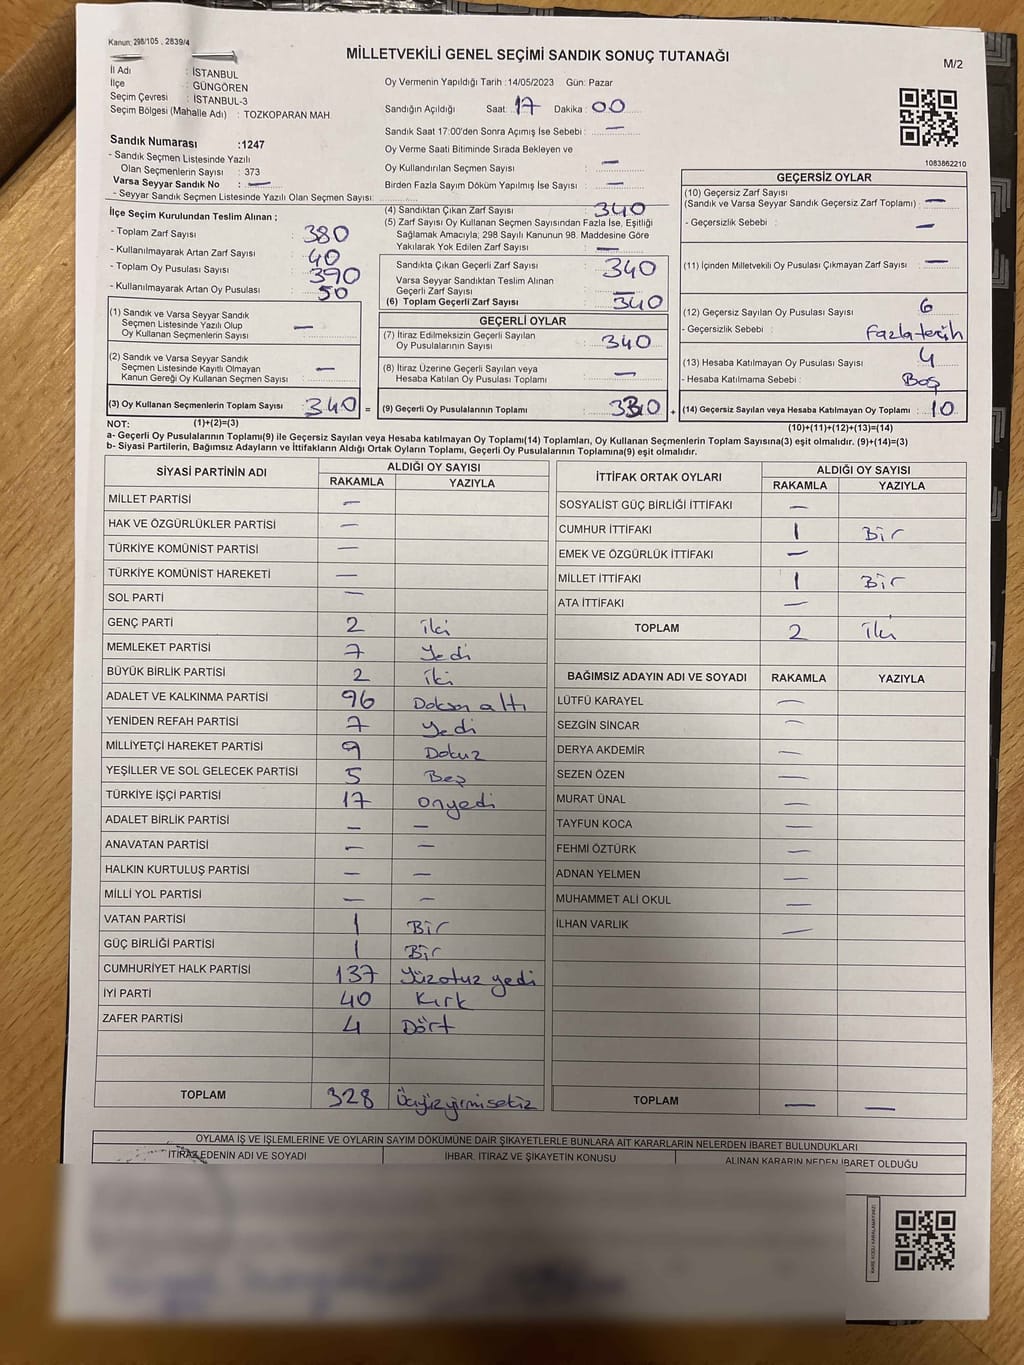 Kanun; 298/105 , 2839/4
MİLLETVEKİLİ GENEL SEÇİMİ SANDIK SONUÇ TUTANAĞI
M/2
İl Adı : İSTANBUL
İlçe : GÜNGÖREN
Seçim Çevresi : İSTANBUL-3
Seçim Bölgesi (Mahalle Adı) : TOZKOPARAN MAH.
Oy Vermenin Yapıldığı Tarih : 14/05/2023 Gün: Pazar
Sandığın Açıldığı Saat: 17 Dakika : 00
Sandık Saat 17:00'den Sonra Açımış İse Sebebi : —
Oy Verme Saati Bitiminde Sırada Bekleyen ve
Oy Kullandırılan Seçmen Sayısı : —
Birden Fazla Sayım Döküm Yapılmış İse Sayısı : —
1083862210
Sandık Numarası :1247
- Sandık Seçmen Listesinde Yazılı
Olan Seçmenlerin Sayısı : 373
Varsa Seyyar Sandık No : —
- Seyyar Sandık Seçmen Listesinde Yazılı Olan Seçmen Sayısı:
İlçe Seçim Kurulundan Teslim Alınan ;
- Toplam Zarf Sayısı : 380
- Kullanılmayarak Artan Zarf Sayısı : 40
- Toplam Oy Pusulası Sayısı : 390
- Kullanılmayarak Artan Oy Pusulası : 50
(1) Sandık ve Varsa Seyyar Sandık
Seçmen Listesinde Yazılı Olup
Oy Kullanan Seçmenlerin Sayısı : —
(2) Sandık ve Varsa Seyyar Sandık
Seçmen Listesinde Kayıtlı Olmayan
Kanun Gereği Oy Kullanan Seçmen Sayısı : —
(3) Oy Kullanan Seçmenlerin Toplam Sayısı : 340 =
(4) Sandıktan Çıkan Zarf Sayısı : 340
(5) Zarf Sayısı Oy Kullanan Seçmen Sayısından Fazla İse, Eşitliği
Sağlamak Amacıyla; 298 Sayılı Kanunun 98. Maddesine Göre
Yakılarak Yok Edilen Zarf Sayısı : —
Sandıkta Çıkan Geçerli Zarf Sayısı : 340
Varsa Seyyar Sandıktan Teslim Alınan
Geçerli Zarf Sayısı : —
(6) Toplam Geçerli Zarf Sayısı : 340
GEÇERLİ OYLAR
(7) İtiraz Edilmeksizin Geçerli Sayılan
Oy Pusulalarının Sayısı : 340
(8) İtiraz Üzerine Geçerli Sayılan veya
Hesaba Katılan Oy Pusulası Toplamı : —
(9) Geçerli Oy Pusulalarının Toplamı : 330 +
GEÇERSİZ OYLAR
(10) Geçersiz Zarf Sayısı
(Sandık ve Varsa Seyyar Sandık Geçersiz Zarf Toplamı) : —
- Geçersizlik Sebebi : —
(11) İçinden Milletvekili Oy Pusulası Çıkmayan Zarf Sayısı : —
(12) Geçersiz Sayılan Oy Pusulası Sayısı : 6
- Geçersizlik Sebebi : Fazla tercih
(13) Hesaba Katılmayan Oy Pusulası Sayısı : 4
- Hesaba Katılmama Sebebi : Boş
(14) Geçersiz Sayılan veya Hesaba Katılmayan Oy Toplamı : 10
NOT: (1)+(2)=(3) (10)+(11)+(12)+(13)=(14)
a- Geçerli Oy Pusulalarının Toplamı(9) ile Geçersiz Sayılan veya Hesaba katılmayan Oy Toplamı(14) Toplamları, Oy Kullanan Seçmenlerin Toplam Sayısına(3) eşit olmalıdır. (9)+(14)=(3)
b- Siyasi Partilerin, Bağımsız Adayların ve İttifakların Aldığı Ortak Oyların Toplamı, Geçerli Oy Pusulalarının Toplamına(9) eşit olmalıdır.
SİYASİ PARTİNİN ADI ALDIĞI OY SAYISI
RAKAMLA YAZIYLA
MİLLET PARTİSİ —
HAK VE ÖZGÜRLÜKLER PARTİSİ —
TÜRKİYE KOMÜNİST PARTİSİ —
TÜRKİYE KOMÜNİST HAREKETİ —
SOL PARTİ —
GENÇ PARTİ 2 iki
MEMLEKET PARTİSİ 7 Yedi
BÜYÜK BİRLİK PARTİSİ 2 iki
ADALET VE KALKINMA PARTİSİ 96 Doksan altı
YENİDEN REFAH PARTİSİ 7 Yedi
MİLLİYETÇİ HAREKET PARTİSİ 9 Dokuz
YEŞİLLER VE SOL GELECEK PARTİSİ 5 Beş
TÜRKİYE İŞÇİ PARTİSİ 17 onyedi
ADALET BİRLİK PARTİSİ — —
ANAVATAN PARTİSİ — —
HALKIN KURTULUŞ PARTİSİ — —
MİLLİ YOL PARTİSİ — —
VATAN PARTİSİ 1 Bir
GÜÇ BİRLİĞİ PARTİSİ 1 Bir
CUMHURİYET HALK PARTİSİ 137 Yüzotuz yedi
İYİ PARTİ 40 Kırk
ZAFER PARTİSİ 4 Dört
TOPLAM 328 Üçyüzyirmisekiz
İTTİFAK ORTAK OYLARI ALDIĞI OY SAYISI
RAKAMLA YAZIYLA
SOSYALİST GÜÇ BİRLİĞİ İTTİFAKI —
CUMHUR İTTİFAKI 1 Bir
EMEK VE ÖZGÜRLÜK İTTİFAKI —
MİLLET İTTİFAKI 1 Bir
ATA İTTİFAKI —
TOPLAM 2 İki
BAĞIMSIZ ADAYIN ADI VE SOYADI RAKAMLA YAZIYLA
LÜTFÜ KARAYEL —
SEZGİN SİNCAR —
DERYA AKDEMİR —
SEZEN ÖZEN —
MURAT ÜNAL —
TAYFUN KOCA —
FEHMİ ÖZTÜRK —
ADNAN YELMEN —
MUHAMMET ALİ OKUL —
İLHAN VARLIK —
TOPLAM — —
OYLAMA İŞ VE İŞLEMLERİNE VE OYLARIN SAYIM DÖKÜMÜNE DAİR ŞİKAYETLERLE BUNLARA AİT KARARLARIN NELERDEN İBARET BULUNDUKLARI
İTİRAZ EDENİN ADI VE SOYADI İHBAR, İTİRAZ VE ŞİKAYETİN KONUSU ALINAN KARARIN NEDEN İBARET OLDUĞU
KARE KODU KARALAMAYINIZ!